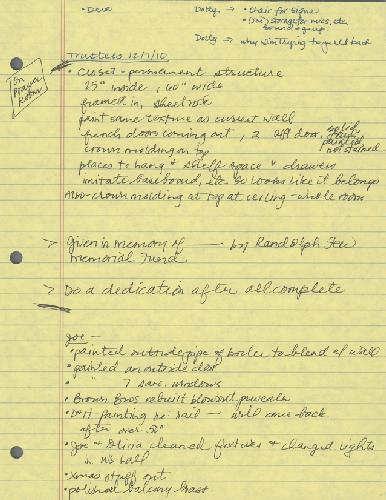 • Dave
Dotty → • Chair for Signe
• (Joe) storage for music, etc.
Dotty →
Trustees 12/7/10
In Prayer Room
• Closet - permanent structure
25" inside, 60" wide
framed in, sheet rock
paint same texture as current wall
french doors coming out, 2 2ft door, solid
painted
not stained
crown molding on top
places to hang & shelf space & drawers
imitate baseboard, etc. so looks like it belongs
crown molding at top at ceiling - whole room
> Given in memory of — by Randolph
Memorial Fund
> Do a dedication after all complete
Joe -
• painted outside pipe of boiler to blend w/ wall
• painted an outside door
• " 7 windows
• Brown Bros rebuilt blowout
• painting re: rail — will come back
after over 50°
• Joe & cleaned fixtures & changed lights
in hall
• Xmas stuff out
• polished balcony brass